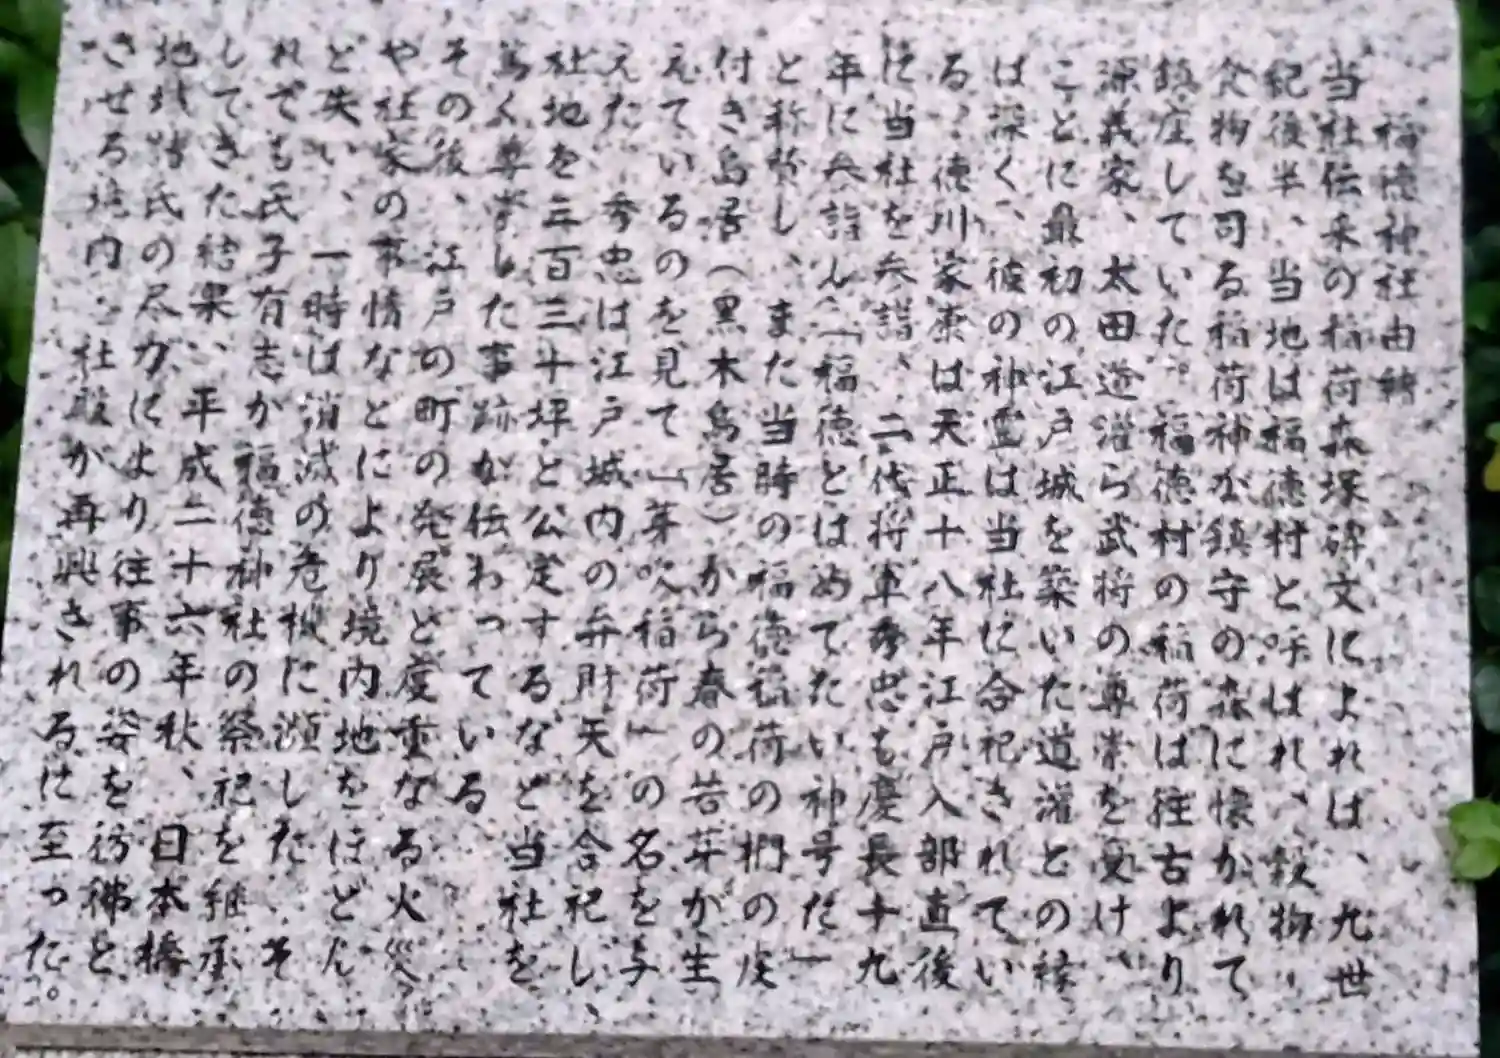 福徳神社由緒
当社伝来の稲荷森塚碑文によれは、九世
紀後半、当地は福徳村と呼はれ、穀物、
食物を司る稲荷神が鎮守の森に懐かれて
鎮座していた。福徳村の稲荷は往古より
源義家、太田道灌ら武将の尊崇を受け、
ことに最初の江戸城を築いた道灌との縁
は深く、彼の神霊は当社に合祀されてい
る。徳川家康は天正十八年江戸入部直後
に当社を参詣、二代将軍秀忠も慶長十九
年に参詣し「福徳とはめてたい神号だ」
と称賛し、また当時の福徳稲荷の椚の皮
付き鳥居（黒木鳥居）から春の若芽が生
えているのを見て「芽吹稲荷」の名を与
えた。秀忠は江戸城内の弁財天を合祀し、
社地を三百三十坪と公定するなど当社を
篤く尊崇した事跡が伝わっている。
その後、江戸の町の発展と度重なる火災
や社家の事情などにより境内地をほどん
ど失い、一時は消滅の危機に瀕した。そ
れでも氏子有志か福徳神社の祭祀を継承
してきた結果、平成二十六年秋、日本橋
地域諸氏の尽力により往事の姿を彷彿と
させる境内・社殿か再興されるに至った。